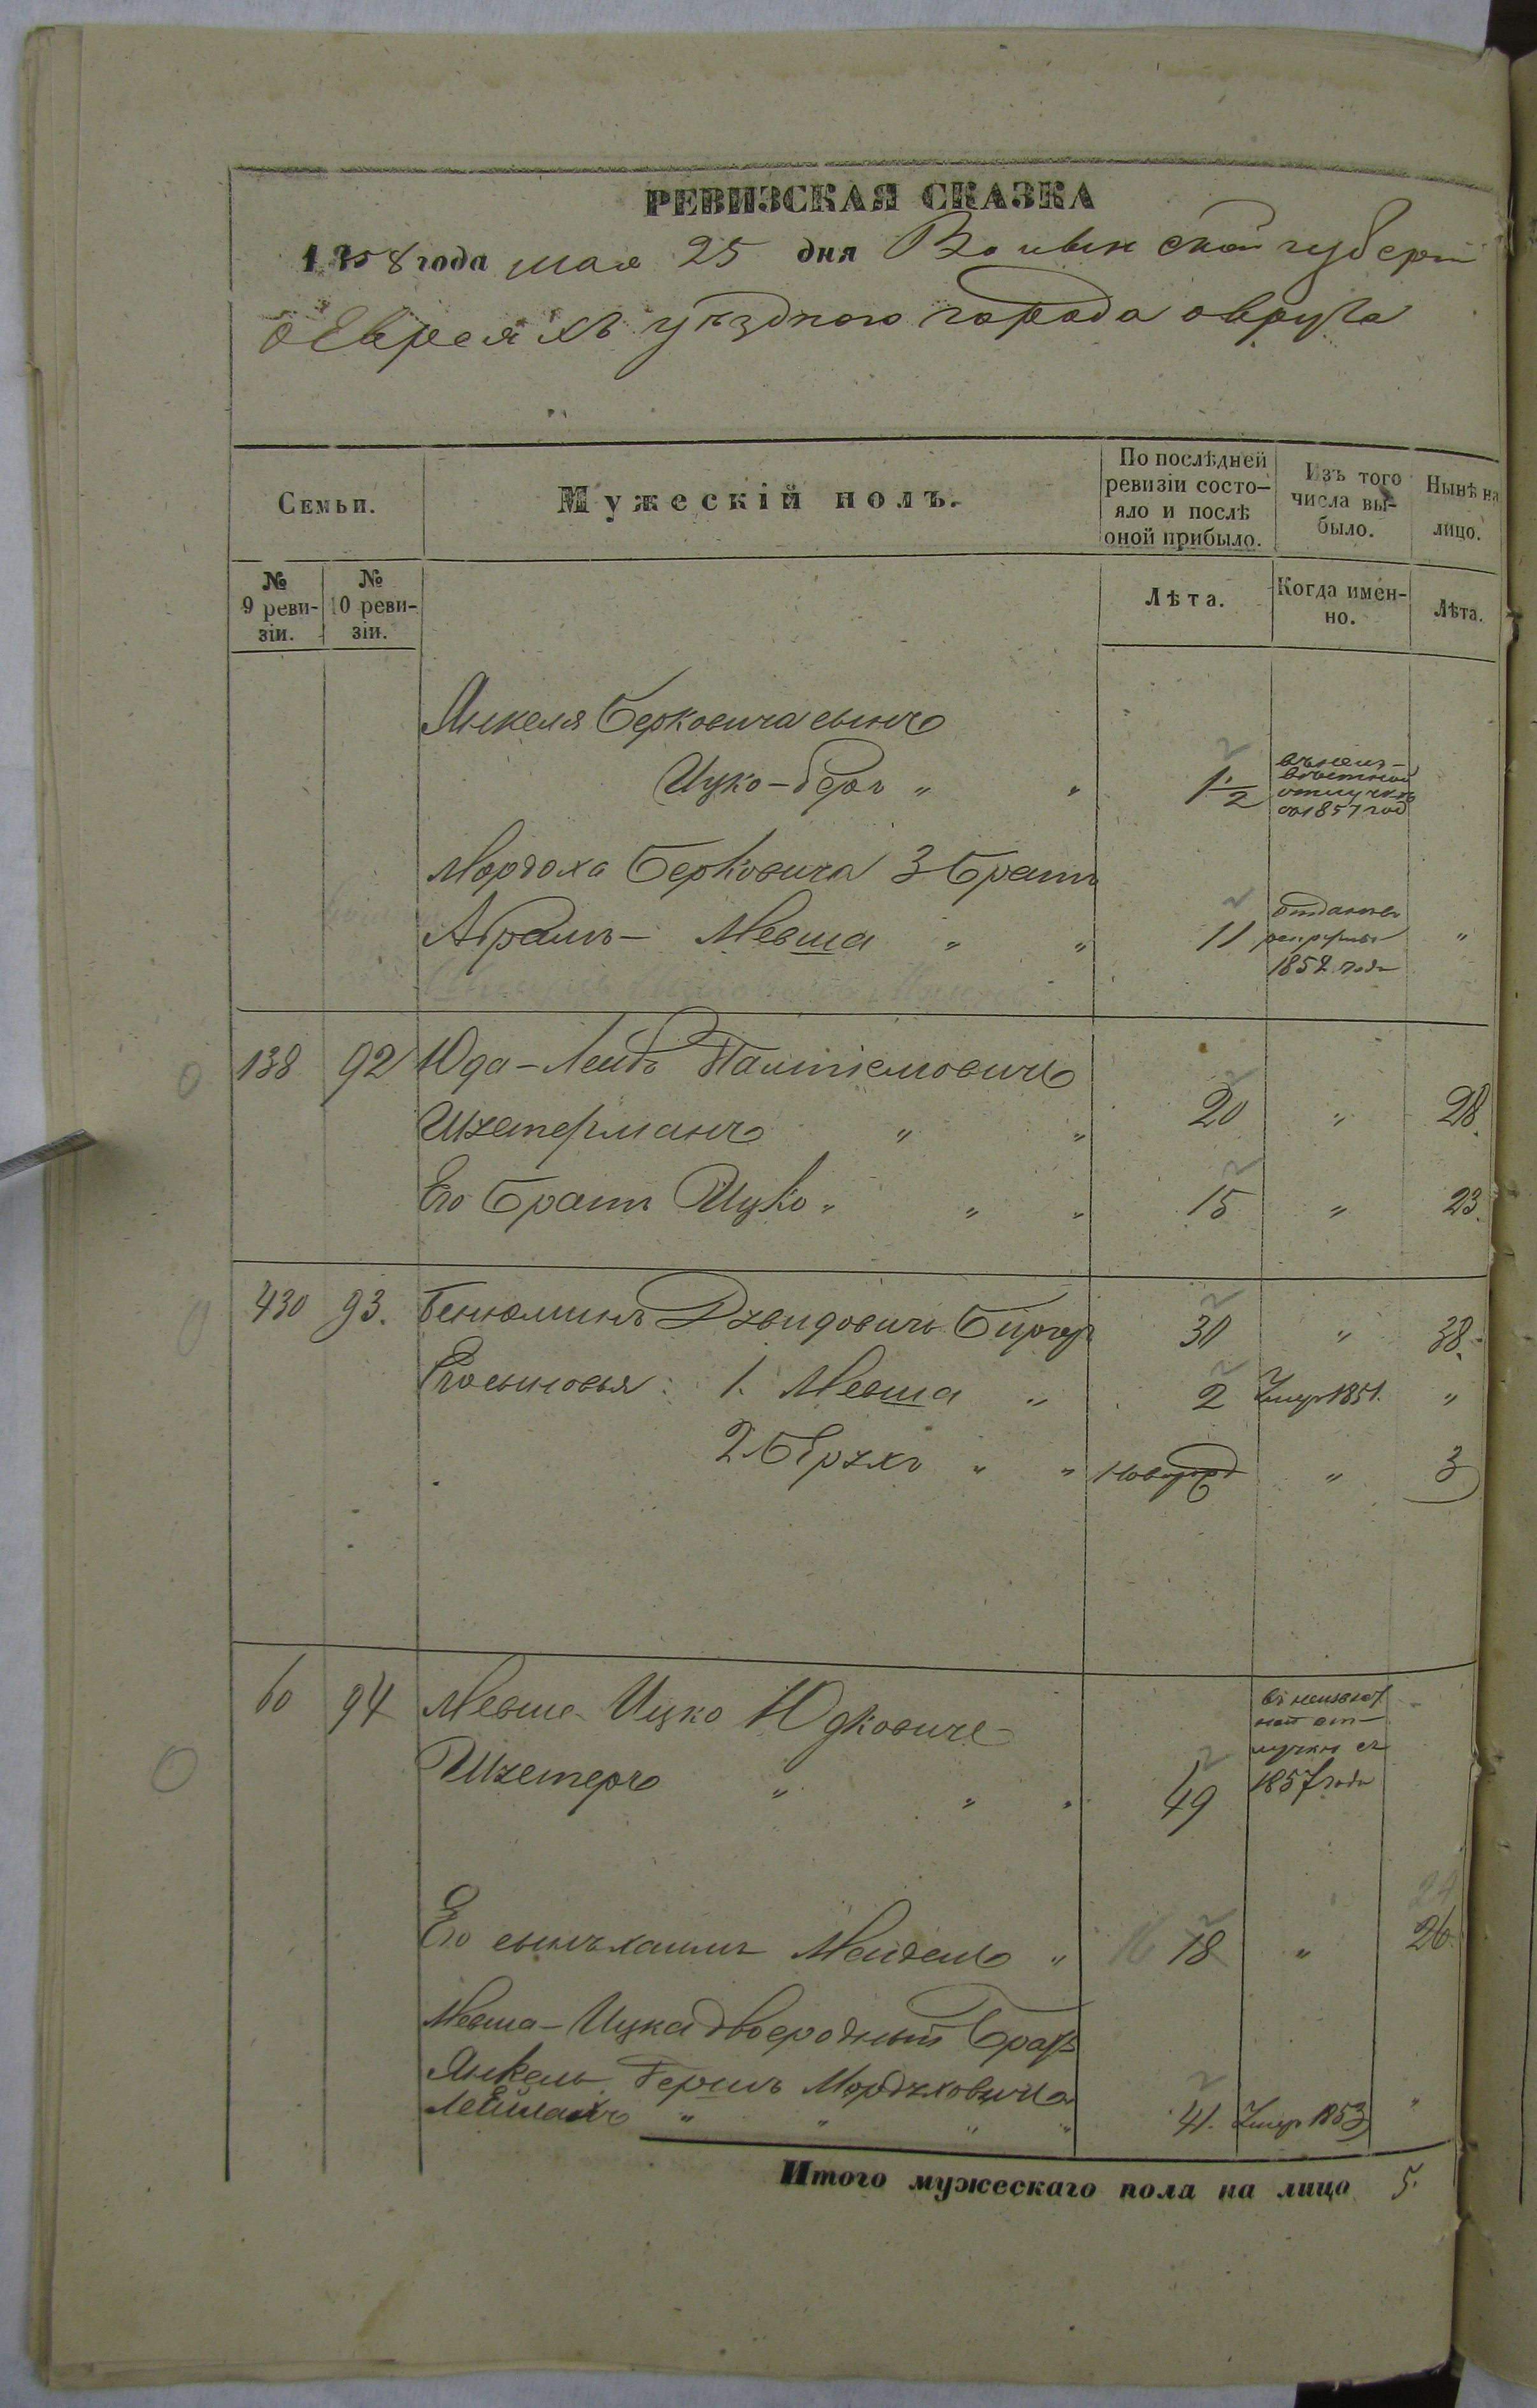 РЕВИЗСКАЯ СКАЗКА
1858 года мая 25 дня Волынской губерніи
о Евреяхъ уѣзднаго города овруча
Семьи.
Мужескій полъ.
По послѣдней ревизіи состо-
яло и послѣ
оной прибыло.
Изъ того
числа вы-
было.
Нынѣ на
лицо.
№
9 реви-
зіи.
№
10 реви-
зіи.
Лѣта.
Когда имен-
но.
Лѣта.
Янкеля Берковича сынъ
Ицко-беръ " " 1 1/2 въ неиз-
вѣстной
отлучкѣ
со 1857 год
Мордоха Берковича 3 братъ
Абрамъ- Мевша " " 11 отданъ въ
рекруты
1852 года "
138 92 Юда-Лейбъ Палтіеловичъ
Штерманъ " " 20 " 28.
Его братъ Ицко " " " 15 " 23.
430 93. Бенюминъ Давидовичъ Бирге 30 " 38.
Его сыновья: 1. Мевша " 2 Умер 1851. "
2 Абрахъ " " Новорожд " 3
60 94 Мевша Ицко Юдковичъ
Штернъ " " " 49 въ неизвѣст
ной от-
лучкѣ съ
1857 года
Его сынъ хаимъ Мендель " 16 18 " 24 26.
Мевша-Ицка двоеродный братъ
Янкель Гершъ Мордховичъ
" " " " 41. Умер 1853 "
Итого мужескаго пола на лицо 5.